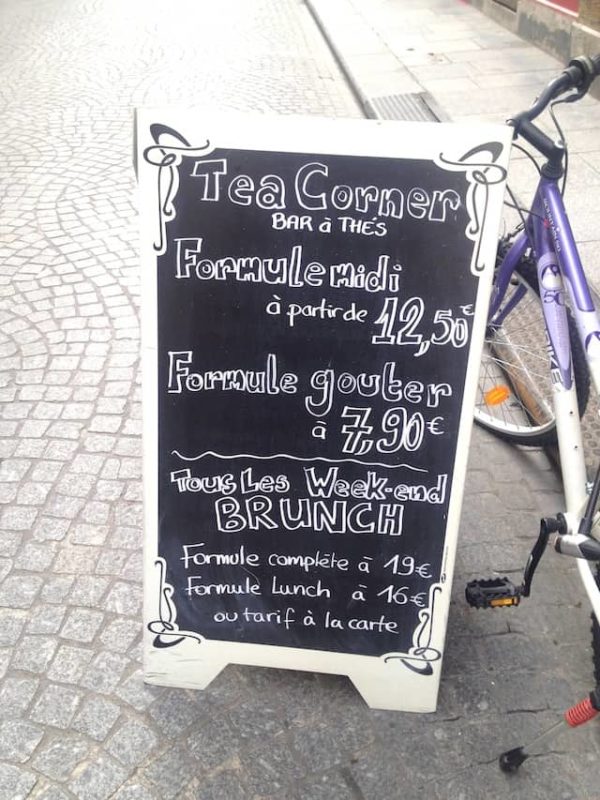 Tea Corner
BAR à THÉS
Formule midi
à partir de 12,50€
Formule gouter
à 7,90€
Tous Les Week-end
BRUNCH
Formule complète à 19€
Formule Lunch à 16€
ou tarif à la carte